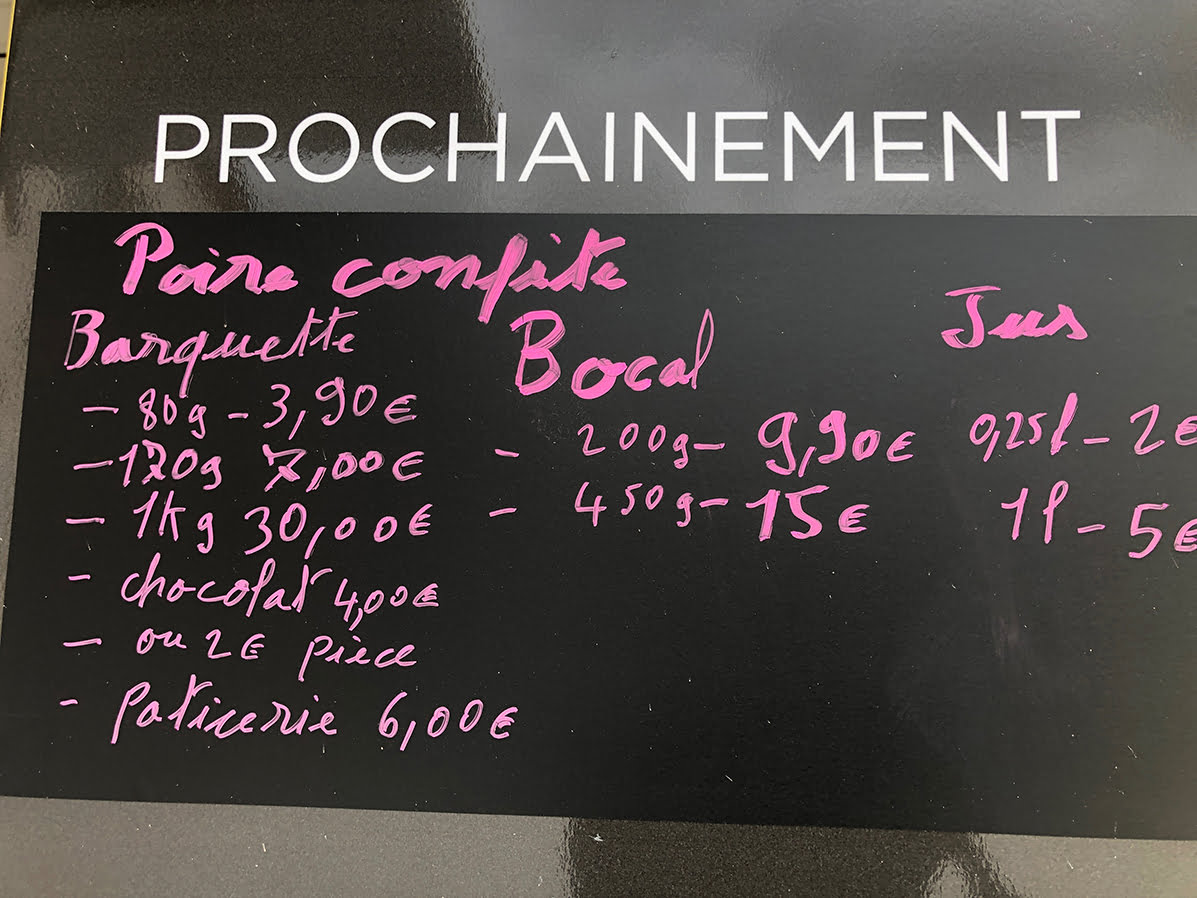 PROCHAINEMENT
Poire confite
Barquette
- 80g - 3,90€
- 170g 7,00€
- 1kg 30,00€
- chocolat 4,00€
- ou 2€ pièce
- paticerie 6,00€
Bocal
- 200g - 9,90€
- 450g - 15€
Jus
0,25l - 2€
1l - 5€